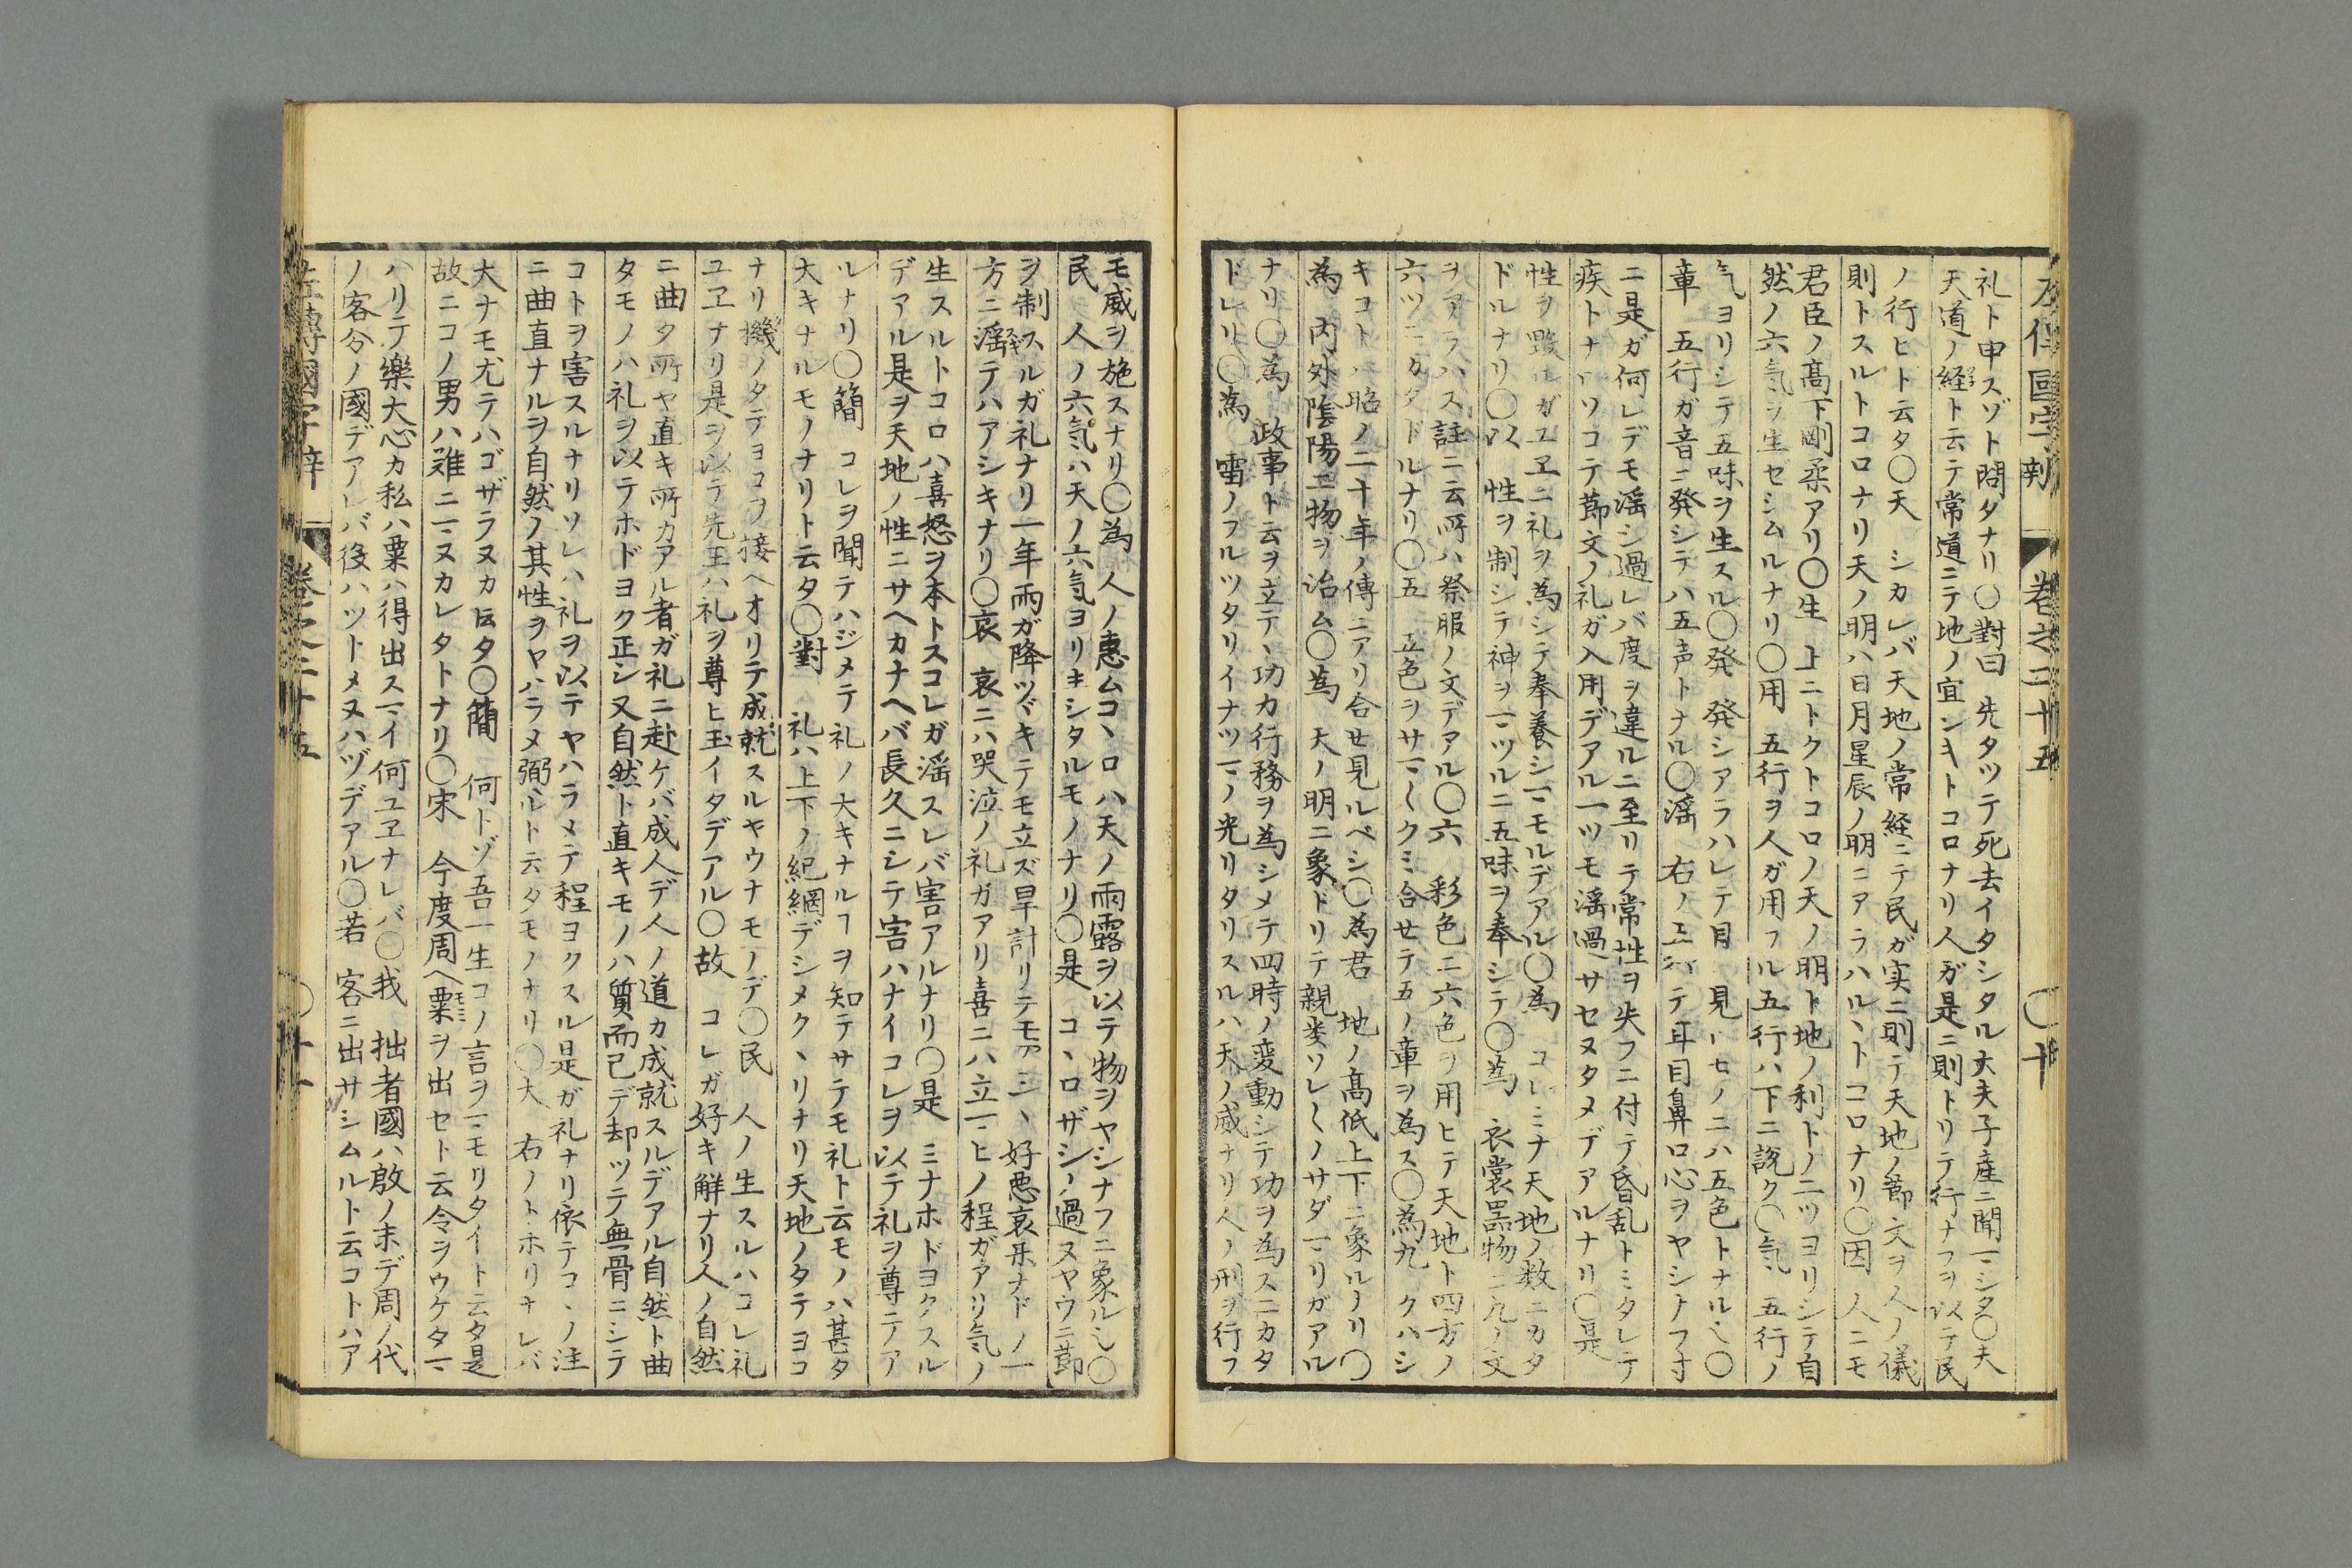 礼ト申スゾト問タナリ〇對曰 先タツテ死去イタシタル大夫子産ニ聞マシタ〇夫
天道ノ経ト云テ常道ニテ地ノ宜シキトコロナリ人ガ是ニ則トリテ行ナフヲ以テ民
ノ行ヒト云タ〇天 シカレバ天地ノ常経ニテ民ガ実ニ則テ天地ノ節文ヲ人ノ儀
則トスルトコロナリ天ノ明ハ日月星辰ノ明ニアラハルヽトコロナリ〇因 人ニモ
君臣ノ髙下剛柔アリ〇生 上ニトクトコロノ天ノ明ト地ノ利トノ二ツヨリシテ自
然ノ六気ヲ生ゼシムルナリ〇用 五行ヲ人ガ用フル五行ハ下ニ説ク〇気 五行ノ
気ヨリシテ五味ヲ生スル〇発 発シアラハレテ目 見 セノニハ五色トナル 〇
章 五行ガ音ニ発シテハ五声トナル〇滛 右ノ テ耳目鼻口心ヲヤシナフ寸
ニ是ガ何レデモ滛シ過レバ度ヲ違ルニ至リテ常性ヲ失フニ付テ昏乱トミタレテ
疾トナ ソコテ節文ノ礼ガ入用デアル一ツモ滛過サセヌタメデアルナリ〇是
性ヲ毀ルガユヱニ礼ヲ為シテ奉養シマモルデアル〇為 コレミナ天地ノ数ニカタ
ドルナリ〇以 性ヲ制シテ神ヲマツルニ五味ヲ奉シテ〇為 衣裳噐物ニ九ノ文
ヲアラハス註ニ云所ハ祭服ノ文デアル〇六 彩色ニ六色ヲ用ヒテ天地ト四方ノ
六ツニカタドルナリ〇五 五色ヲサマ〱クミ合セテ五ノ章ヲ為ス〇為九 クハシ
キコトハ昭ノ二十年ノ傳ニアリ合セ見ルベシ〇為君 地ノ髙低上下ニ象ルナリ〇
為 内外陰陽ニ物ヲ治ム〇為 天ノ明ニ象ドリテ親类ソレ〱ノサダマリガアル
ナリ〇為 政事ト云ヲ立テヽ功カ行務ヲ為シメテ四時ノ変動シテ功ヲ為スニカタ
ドレリ〇為 雷ノフルツタリイナツマノ光リタリスルハ天ノ威ナリ人ノ刑ヲ行フ
モ威ヲ施スナリ〇為 人ノ恵ムコヽロハ天ノ雨露ヲ以テ物ヲヤシナフニ象ル也〇
民 人ノ六気ハ天ノ六気ヨリキシタルモノナリ〇是 コヽロザシノ過ヌヤウニ節
ヲ制スルガ礼ナリ一年雨ガ降ツヾキテモ立ズ旱計リテモ 好悪哀乐ナドノ一
方ニ滛テハアシキナリ〇哀 哀ニハ哭泣ノ礼ガアリ喜ニハ立マヒノ程ガアリ気ノ
生スルトコロハ喜怒ヲ本トスコレガ滛スレバ害アルナリ〇是 ミナホドヨクスル
デアル是ヲ天地ノ性ニサヘカナヘバ長久ニシテ害ハナイコレヲ以テ礼ヲ尊ニア
ルナリ〇簡 コレヲ聞テハジメテ礼ノ大キナルヿヲ知テサテモ礼ト云モノハ甚タ
大キナルモノナリト云タ〇對 礼ハ上下ノ紀綱デシメクヽリナリ天地ノタテヨコ
ナリ機ノタテヨコヲ接ヘオリテ成就スルヤウナモノデ〇民 人ノ生スルハコレ礼
ユヱナリ是ヲ以テ先王ハ礼ヲ尊ヒ玉イタデアル〇故 コレガ好キ解ナリ人ノ自然
ニ曲タ所ヤ直キ所カアル者ガ礼ニ赴ケバ成人デ人ノ道カ成就スルデアル自然ト曲
タモノハ礼ヲ以テホドヨク正シ又自然ト直キモノハ質而已デ却ツテ無骨ニシテ
コトヲ害スルナリソレハ礼ヲ以テヤハラメテ程ヨクスル是ガ礼ナリ依テコヽノ注
ニ曲直ナルヲ自然ノ其性ヲヤハラメ弼ルト云タモノナリ〇大 右ノトホリナレバ
大ナモ尤テハゴザラヌカ伝タ〇簡 何トゾ吾一生コノ言ヲマモリタイト云タ是
故ニコノ男ハ難ニマヌカレタトナリ〇宋 今度周ヘ粟ヲ出セト云令ヲウケタマ
ハリテ樂大心カ私ハ粟ハ得出スマイ何ユヱナレバ〇我 拙者國ハ殷ノ末デ周ノ代
ノ客分ノ國デアレバ役ハツトメヌハヅデアル〇若 客ニ出サシムルト云コトハア